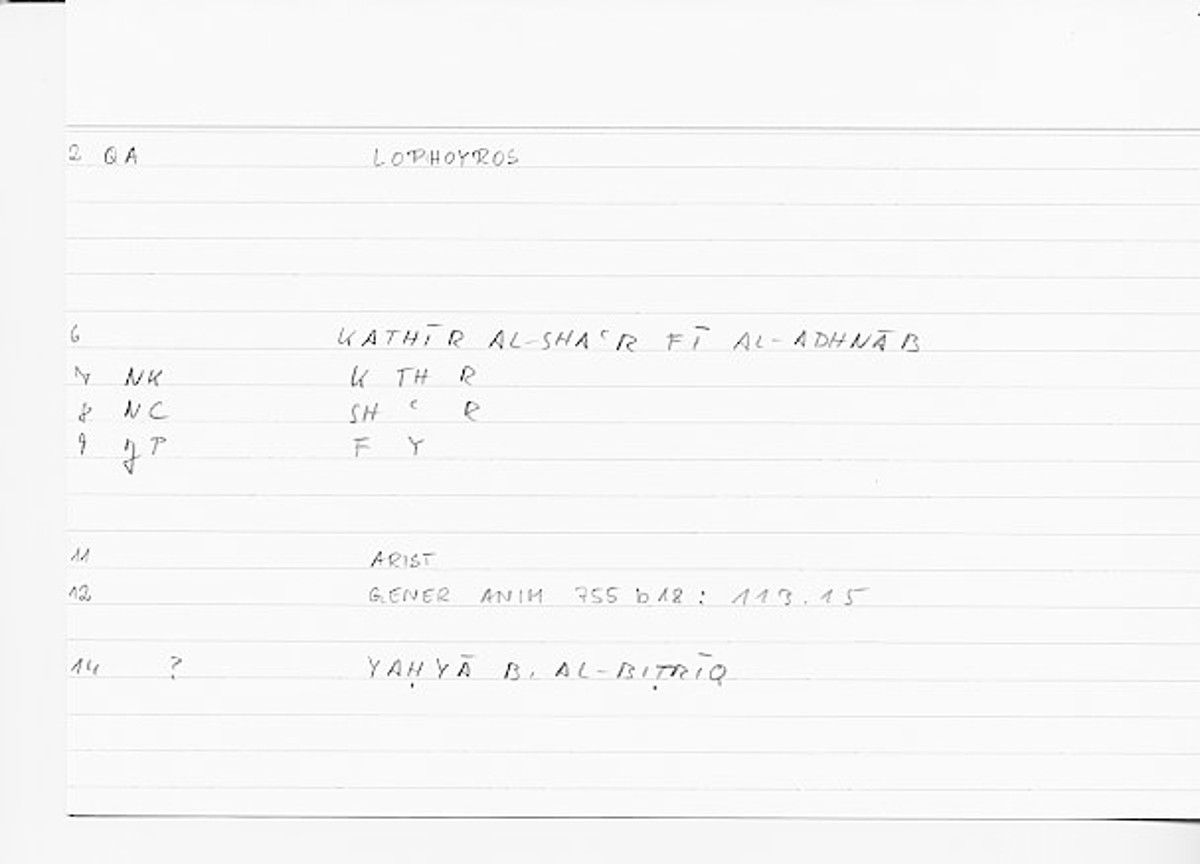 2 QA LOPHOYROS
6 KATHĪR AL-SHAʿR FĪ AL-ADHNĀB
7 NK K TH R
8 NC SH ʿ R
9 JP F Y
11 ARIST
12 GENER ANIM 755 b 18 : 113.15
14 ? YAḤYĀ B. AL-BIṬRĪQ